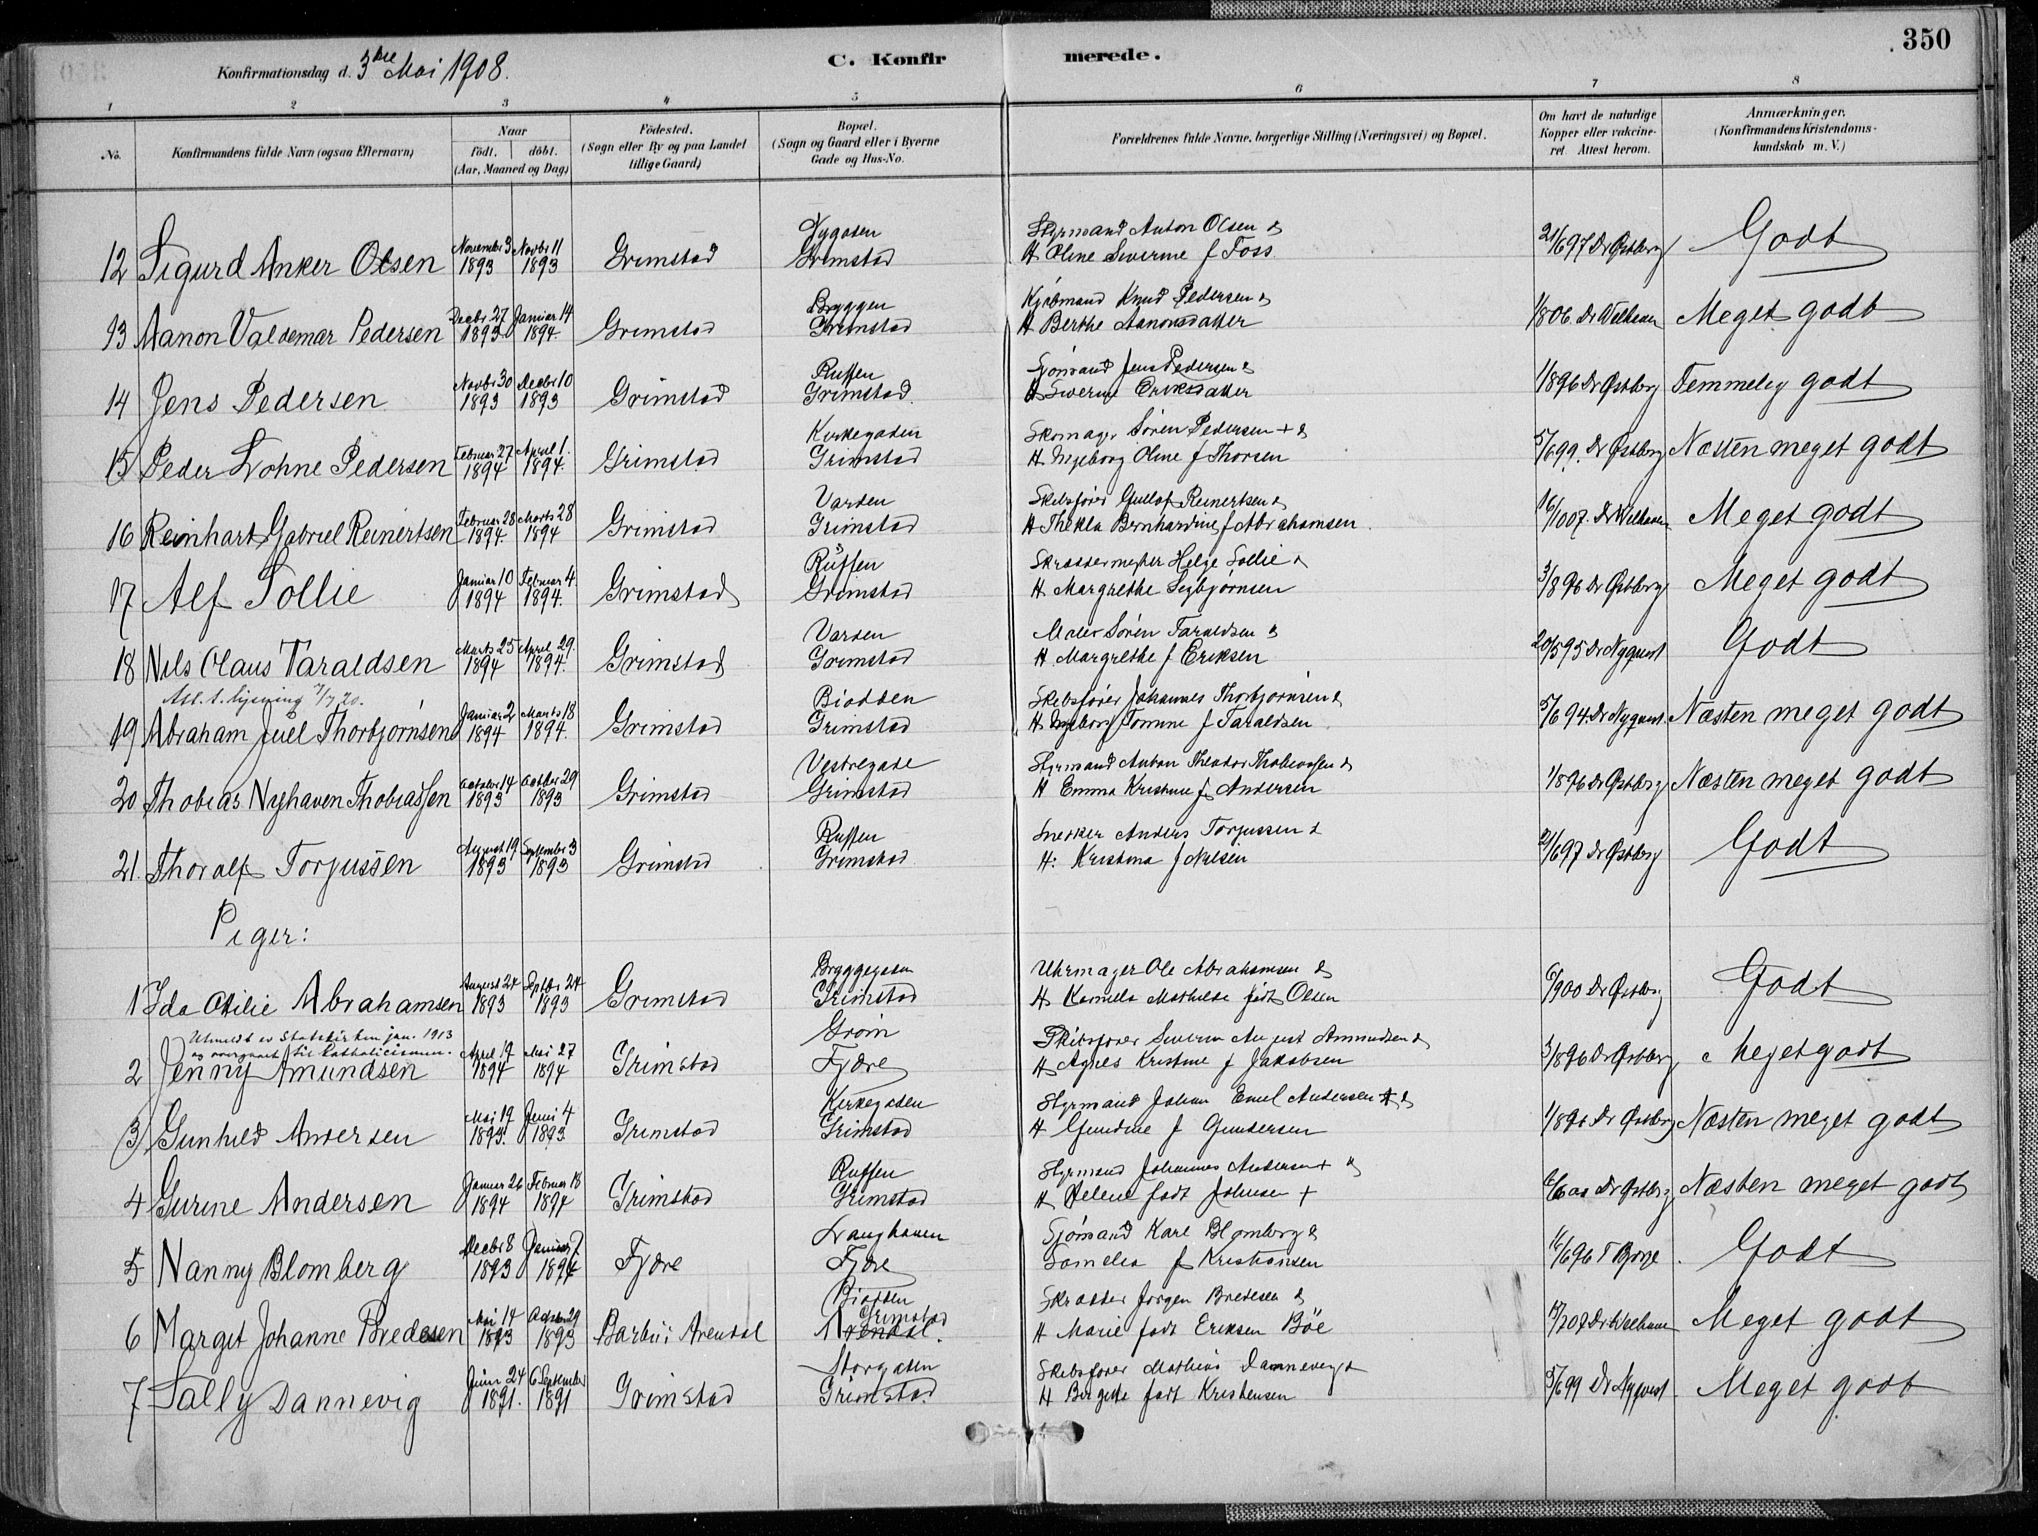 350
Konfirmationsdag d. 3die Mai 1908.
C. Konfirmerede.
1 2 3 4 5 6 7 8
No.
Konfirmandens fulde Navn (ogsaa Efternavn)
Naar
født. døbt.
(Aar, Maaned og Dag)
Fødested.
(Sogn eller By og paa Landet
tillige Gaard)
Bopæl.
(Sogn og Gaard eller i Byerne
Gade og Hus-No.
Forældrenes fulde Navne, borgerlige Stilling (Næringsvei) og Bopæl.
Om havt de naturlige
Kopper eller vakcine-
ret. Attest herom.
Anmærkninger.
(Konfirmandens Kristendoms-
kundskab m. V.)
12 Sigurd Anker Olsen November 3 1893 Novbr 11 1893 Grimstad Grimstad
Styrmand Anton Olsen &
H Oline Severine f Foss
21/6 97 Dr Østberg Godt
13 Aanon Valdemar Pedersen Decbr 27 1893 Januar 14 1894. Grimstad Bryggen Grimstad
Kjøbmand Knud Pedersen &
H Berthe Aanonsdatter
1/8 06. Dr Welhaven Meget godt
14 Jens Pedersen Novbr 30 1893 Decbr 10 1893 Grimstad Ruffen Grimstad.
Sjömand Jens Pedersen &
H Severine Eriksdatter
1/8 96 Dr Østberg Temmelig godt
15 Peder Lohne Pedersen Februar 27 1894 April 1. 1894. Grimstad Kirkegaden Grimstad
Skomager Sören Pedersen + &
H Ingeborg Oline f Thorsen
5/6 99. Dr Østberg Næsten meget godt
16 Reinhart Gabriel Reinertsen Februar 28 1894. Marts 28 1894 Grimstad Varden Grimstad
Skibsfører Gullof Reinertsen &
H Thekla Bernhardine f Abrahamsen
16/10 07. Dr Welhaven Meget godt
17 Alf Sollie Januar 10 1894 Februar 4. 1894. Grimstad Ruffen Grimstad
Skræddermester Helge Sollie &
H Margrethe Sigbjørnsen
3/8 96 Dr Østberg Meget godt
18 Nils Olaus Taraldsen Marts 25 1894 April 29. 1894. Grimstad Varden Grimstad
Maler Sören Taraldsen &
H. Margrethe f Eriksen
20/5 95 Dr Nyquist Godt
Att. t. lysning 7/7 20.
19 Abraham Juel Thorbjørnsen Januar 2 1894 Marts 18 1894. Grimstad Biodden Grimstad
Skibsfører Johannes Thorbjørnsen &
H Ingeborg Tomine f Taraldsen
5/6 94. Dr Nyquist Næsten meget godt
20 Thobias Nyhaven Thobiassen October 14 1893 October 29 1893 Grimstad Vestregade Grimstad
Styrmand Anton Theodor Thobiassen &
H Emma Kristine f Andersen
1/8 96 Dr Østberg Næsten meget godt
21. Thoralf Torjussen August 19 1893 September 3 1893 Grimstad Ruffen Grimstad
Snedker Anders Torjussen &
H: Kristina f Nilsen
21/6 97 Dr Østberg Godt
Piger:
1 Ida Otilie Abrahamsen August 24 1893 Septbr 24 1893 Grimstad Bryggegaden Grimstad
Uhrmager Ole Abrahamsen &
H Kamilla Mathilde født Olsen
6/9 00 Dr Østberg Godt
Utmeldt av Statskirken jan. 1913
og overgaaet til Katholicismen.
2 Jenny Amundsen April 17 1894 Mai 27 1894 Grimstad Grøm Fjære
Skibsfører Severin August Ammundsen &
H Agnes Kristine f Jakobsen
3/8 96 Dr Østberg Meget godt
3 Gunhild Andersen Mai 19 1893. Juni 4 1893 Grimstad Kirkegaden Grimstad
Styrmand Johan Emil Andersen + &
H Gundine f Gundersen
Dr Østberg Næsten meget godt
4 Gurine Andersen Januar 26 1894 Februar 18 1894 Grimstad Ruffen Grimstad
Styrmand Johannes Andersen + &
H Helene født Johnsen +
Dr Østberg Næsten meget godt
5 Nanny Blomberg Decbr 8 1893 Januar 7 1894 Fjære Langhaven Fjære
Sjömand Karl Blomberg &
f Kristiansen
16/6 96 Godt
6 Marget Johanne Bredesen Mai 14 1893 1893 Barbu: Arendal Biodden Grimstad Arendal.
Skrædder Jørgen Bredesen &
H Marie født Eriksen Böe
Dr Welhaven Meget godt
7 Sally Dannevig Juni 24 1891. 6 September 1891 Grimstad Storgaden Grimstad.
Skibsfører Mathias Dannevig &
H Birgitte født Kristensen
5/6 99 Dr Nyquist Meget godt